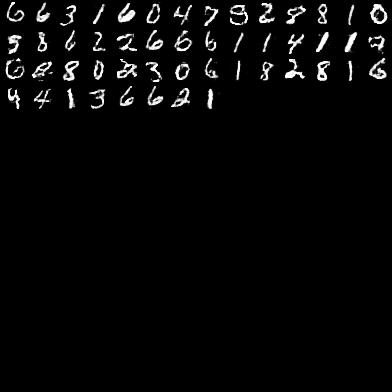 6 6 3 1 6 0 4 7 9 2 8 8 1 0
5 8 6 2 2 6 6 6 1 1 4 1 1 2
6 2 8 0 2 3 0 6 1 8 2 8 1 6
4 4 1 3 6 6 2 1